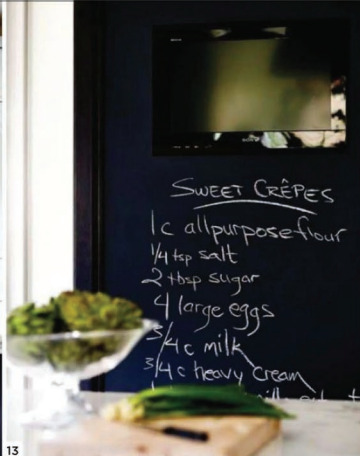 SWEET CRÊPES
1 c allpurpose flour
1/4 tsp salt
2 tbsp sugar
4 large eggs
3/4 c milk
3/4 c heavy cream
13